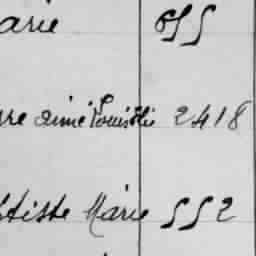 arie 655
rre aimé Louis Elie 2418
tiste Marie 552